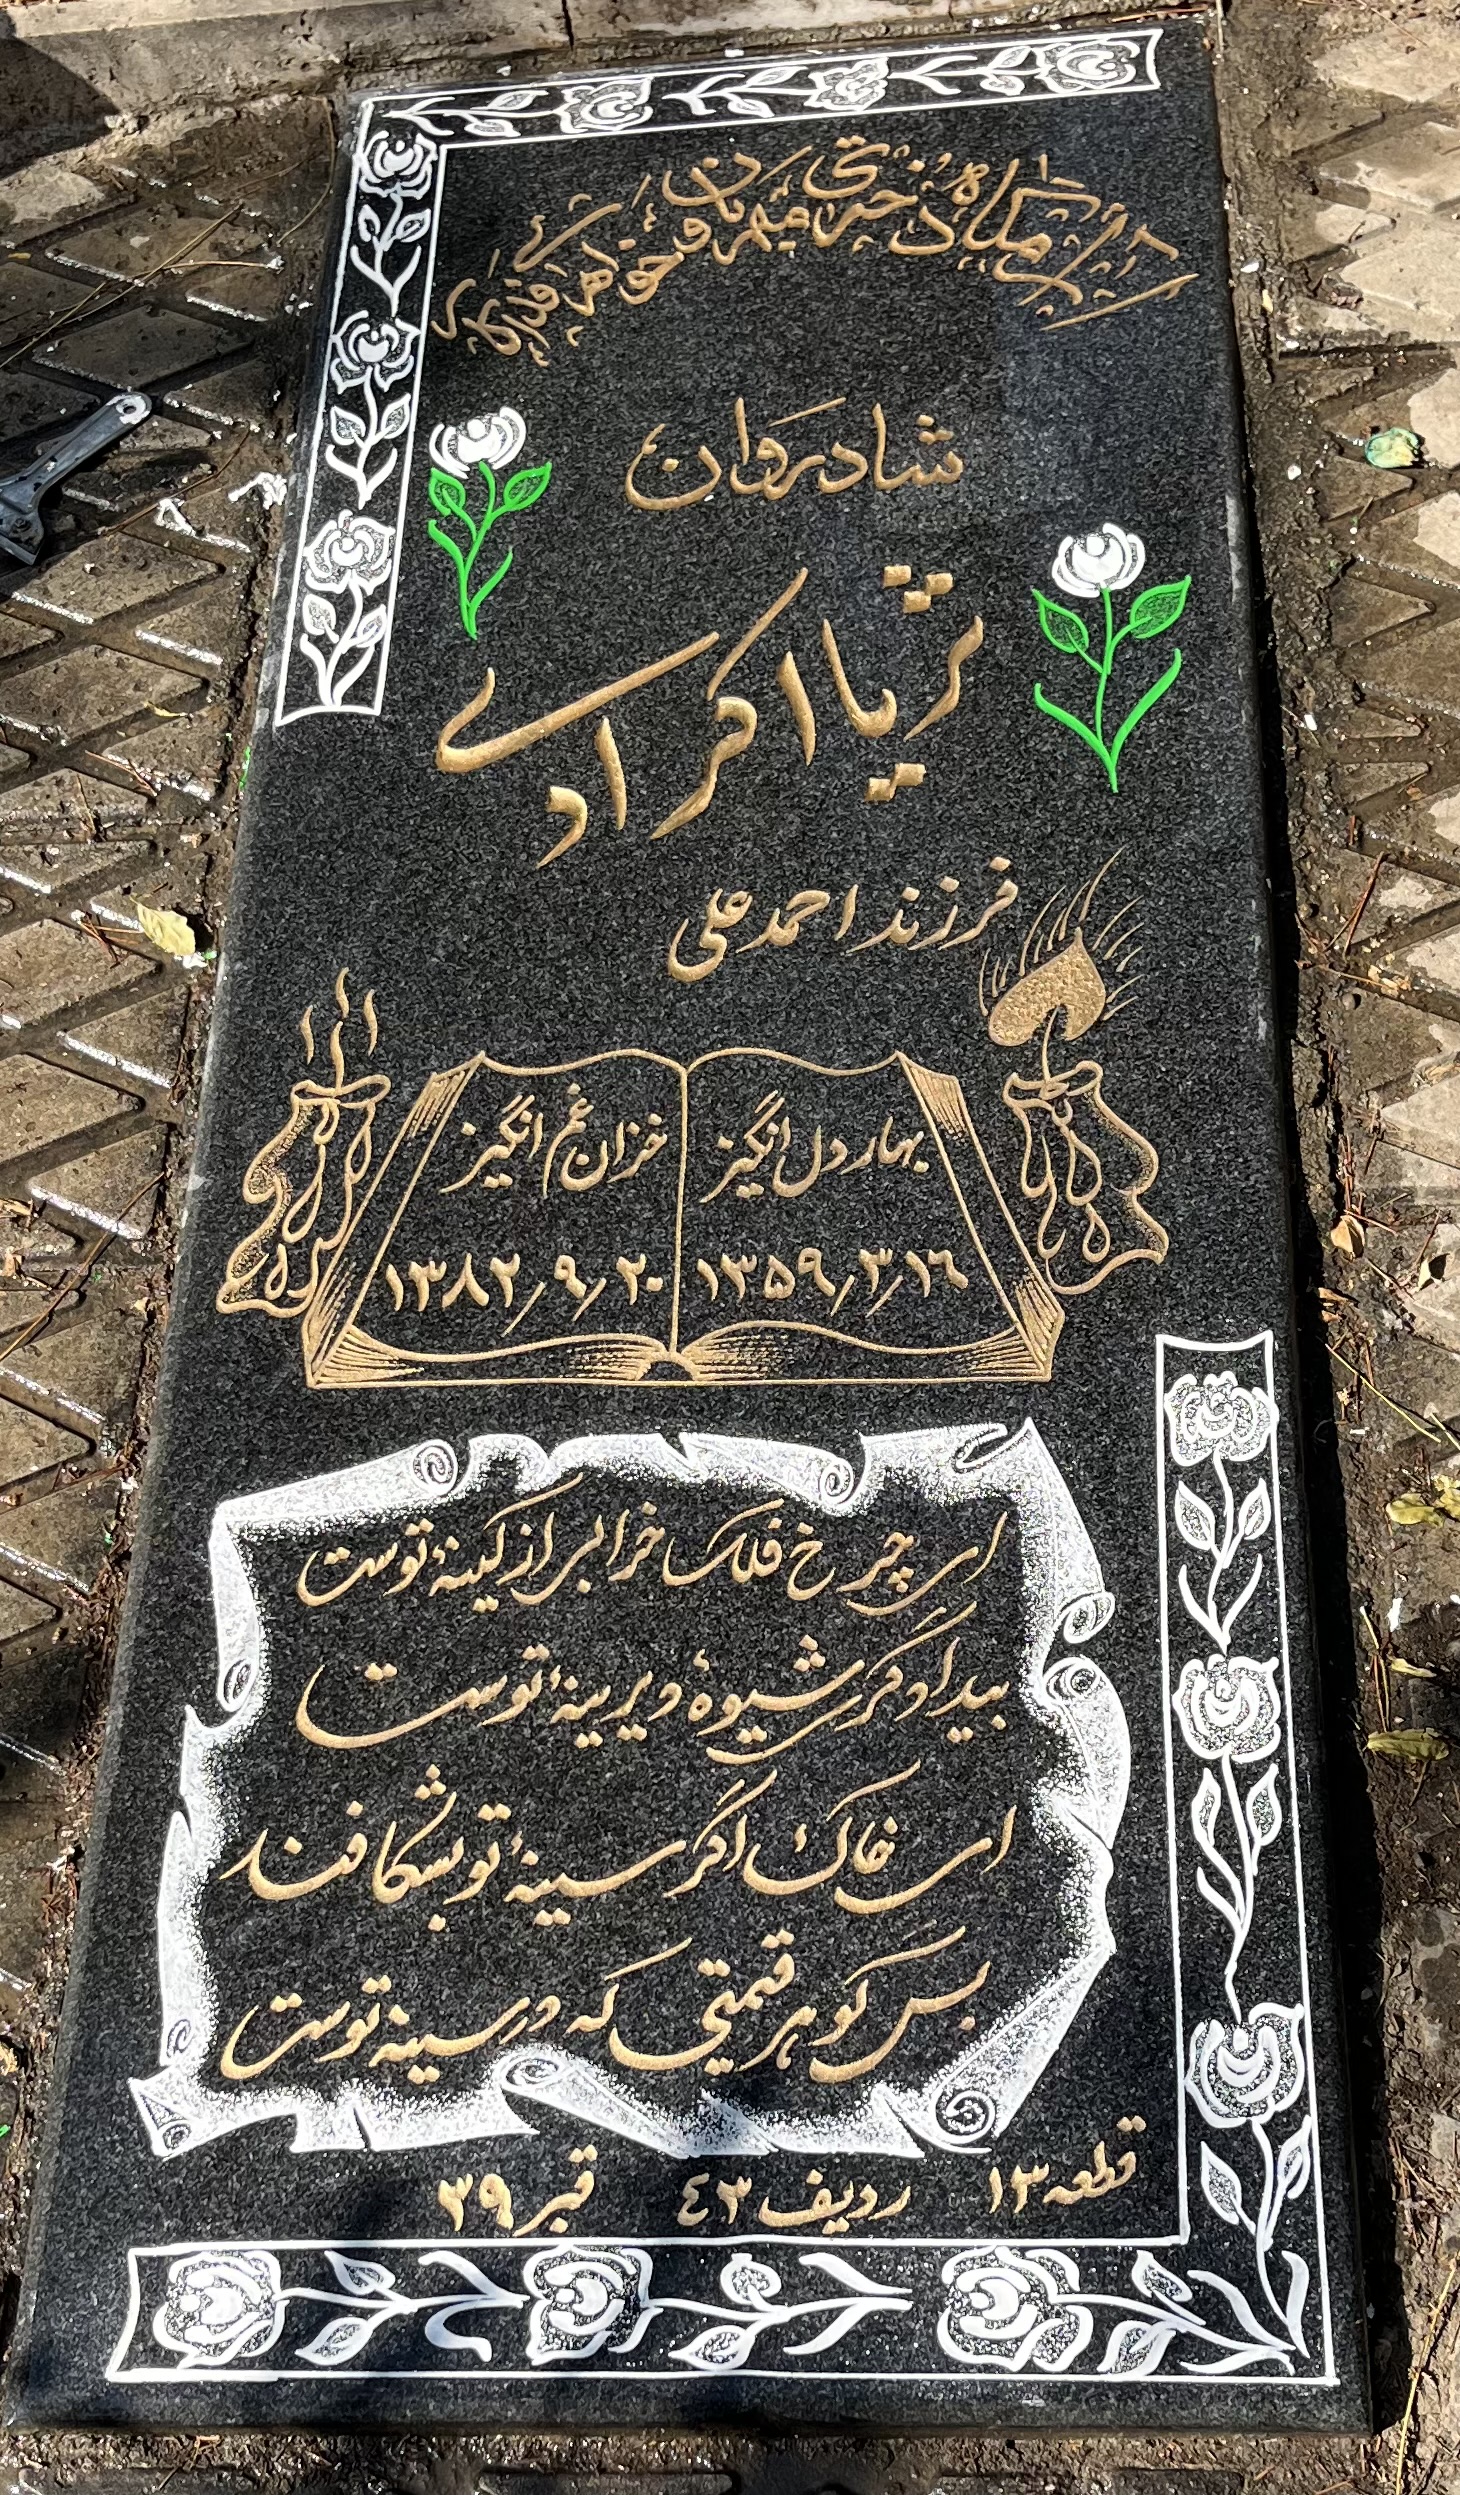 آرامگاه دختری مهربان و خواهر فداکار
شادروان
ثریا اکرادی
فرزند احمد علی
بهار دل انگیز
۱۳۵۹/۳/۱۶
خزان غم انگیز
۱۳۸۲/۹/۲۰
ای چرخ فلک خرابی از کینهٔ توست
بیدادگری شیوهٔ دیرینهٔ توست
ای خاک اگر سینهٔ تو بشکافند
بس گوهر قیمتی که در سینهٔ توست
قطعه ۱۳ ردیف ۴۳ قبر ۳۹